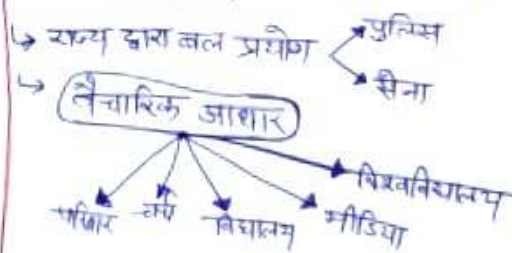 ↳ राज्य द्वारा बल प्रयोग
पुलिस
सेना
↳ वैचारिक आधार
परिवार चर्च विद्यालय मीडिया विश्वविद्यालय